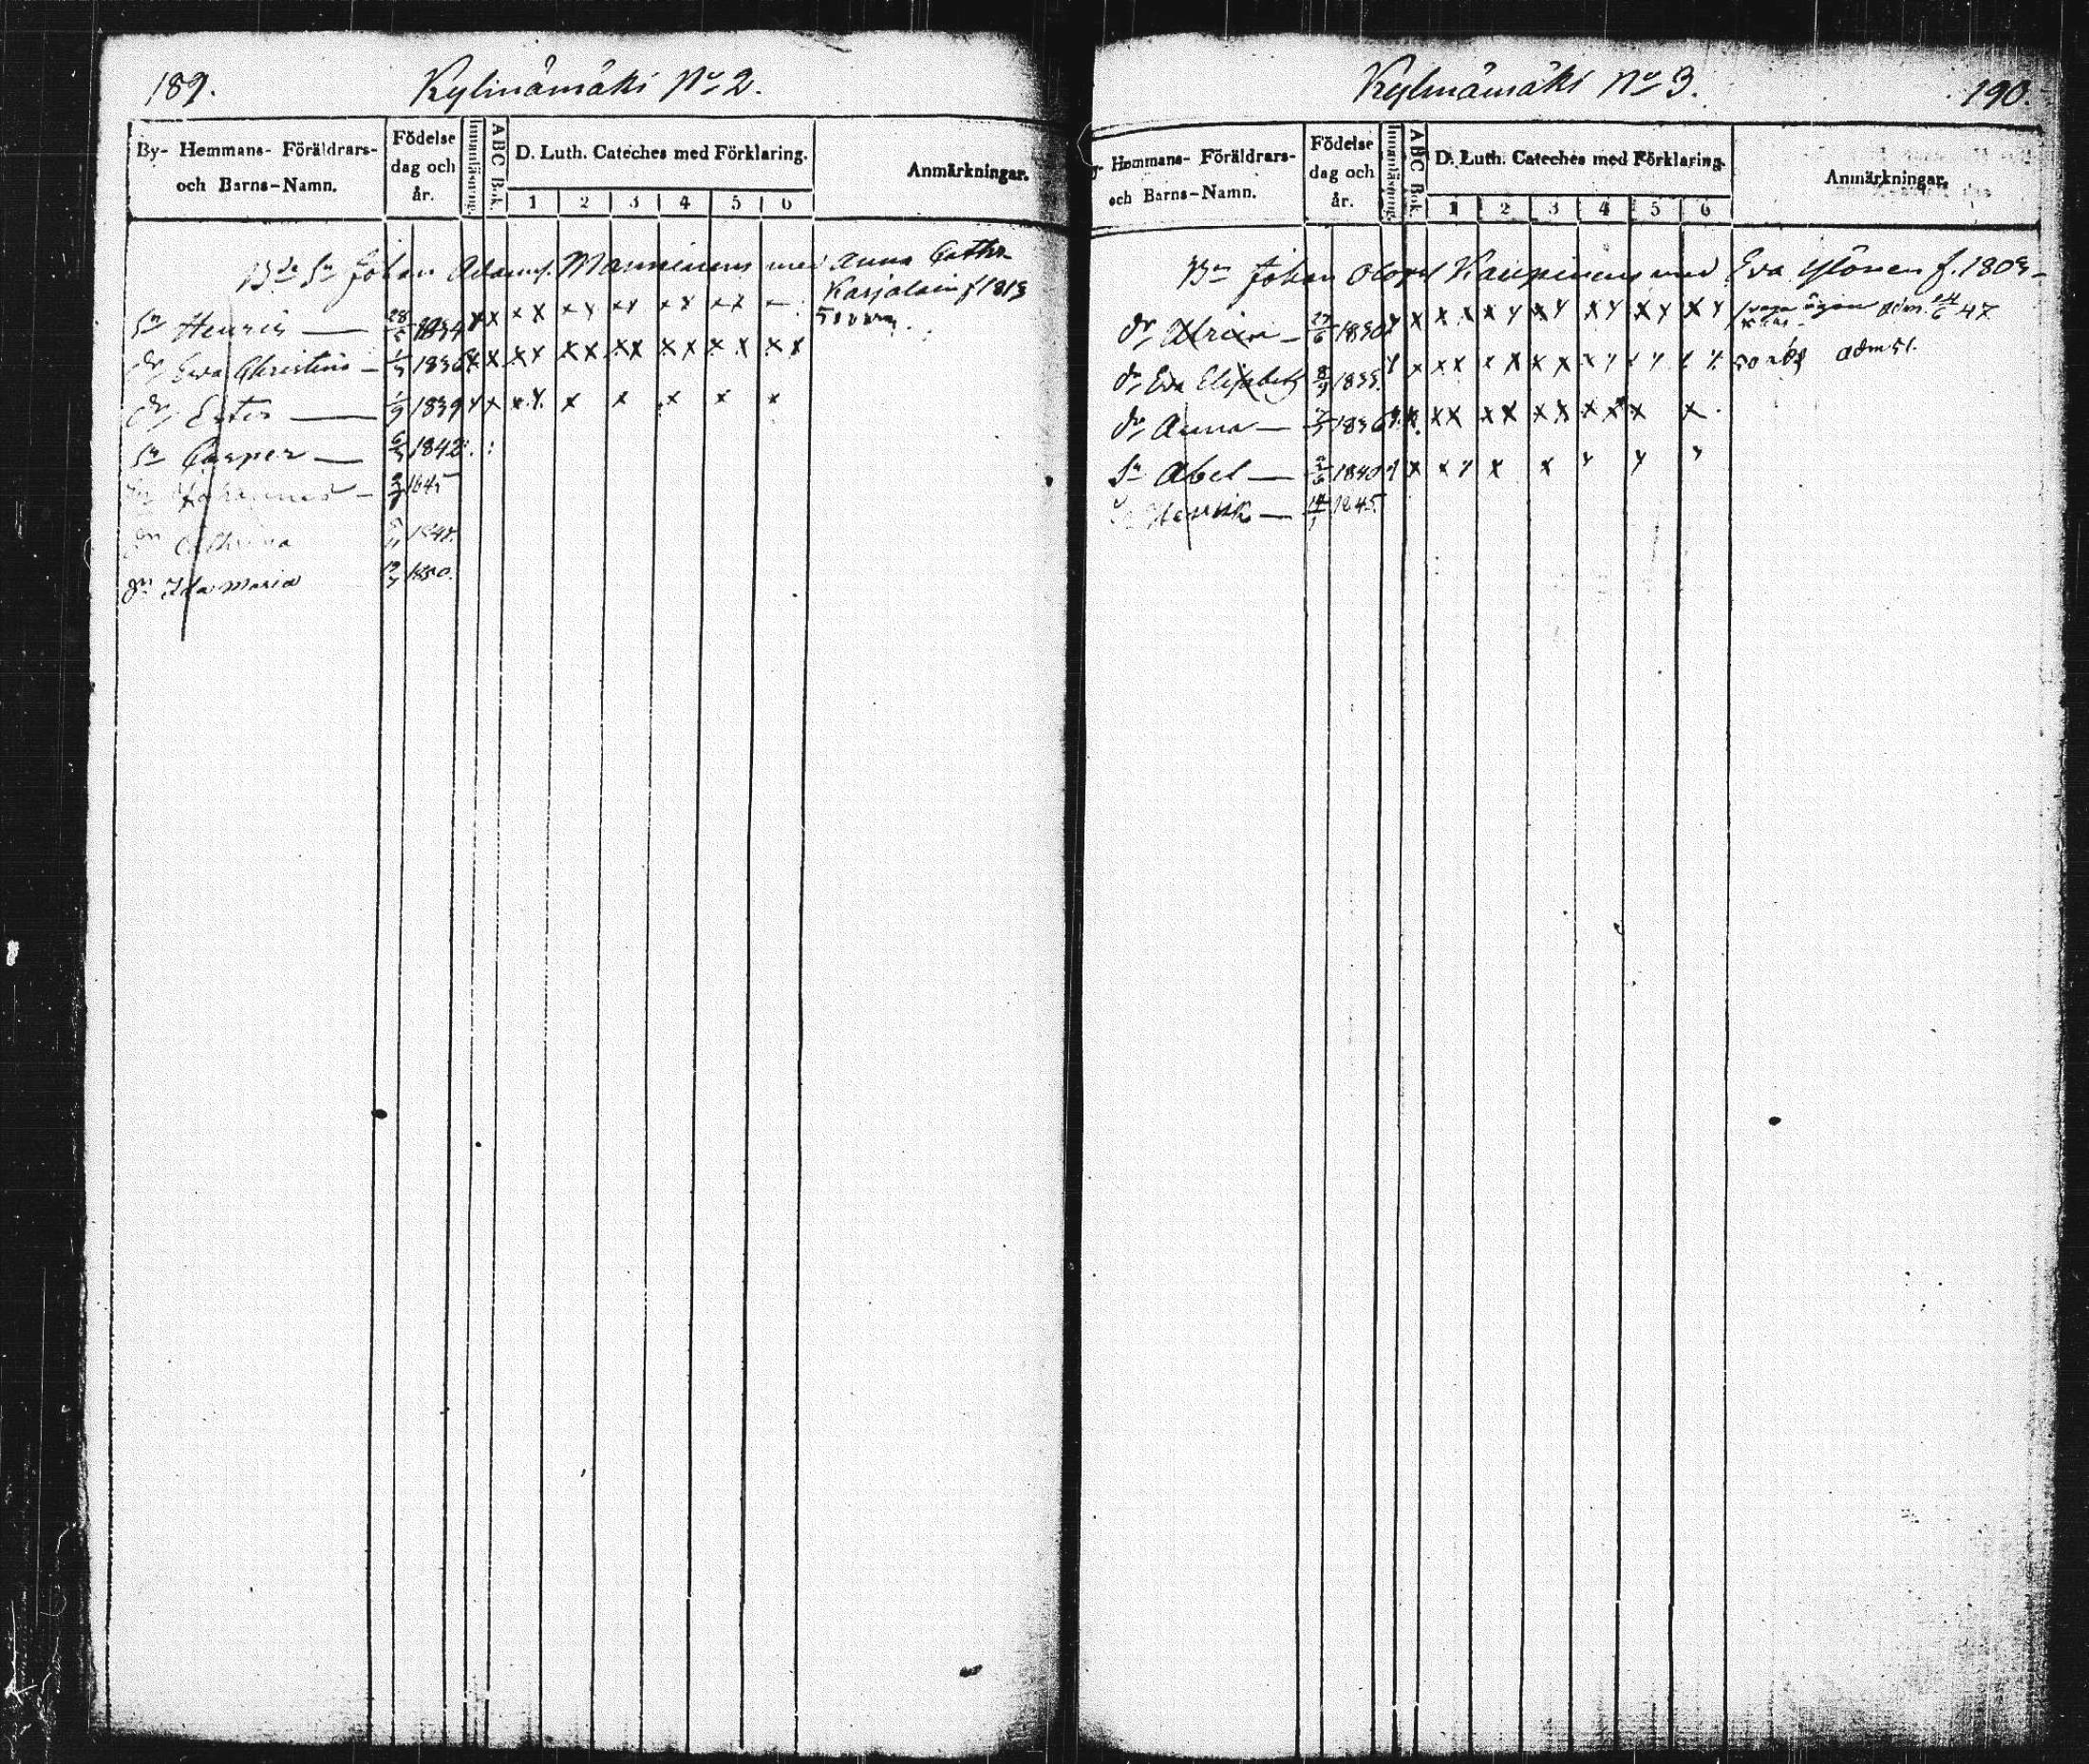 189. Kylmämäki No 2.
By- Hemmans- Föräldrars- och Barns-Namn.
Födelse dag och år.
Innanläsning.
ABC Bok.
D. Luth. Cateches med Förklaring.
1 2 3 4 5 6
Anmärkningar.
Bde Sn Johan Adamss. Manninens med Anna Cathr.
Karjalain f 1813
Sn Henric 28/5 1834 x x x x x x x x x x x x
dr Eva Christina 1836 x x x x x x x x x x x x x x
dr Ester 1839 x x x x x x x x x
Sn Casper 1842
Johannes 1845
dr Cathrina
dr Ida Maria 1850.
Kylmämäki No 3. 190.
Hemmans- Föräldrars- och Barns-Namn.
Födelse dag och år.
Innanläsning.
ABC Bok.
D. Luth. Cateches med Förklaring.
1 2 3 4 5 6
Anmärkningar.
Bn Johan Olofss Kaupinens med Eva Ylönen f. 1803
dr 27/6 1830 x x x x x x x x x x x x x x adm. 24/6 47
dr Eva Elisabeth 8/9 1833 x x x x x x x x x x x x x x adm 51.
dr Anna 1836 x x x x x x x x x x x x
Sn Abel 1840 x x x x x x x x x
Henrik 1845.